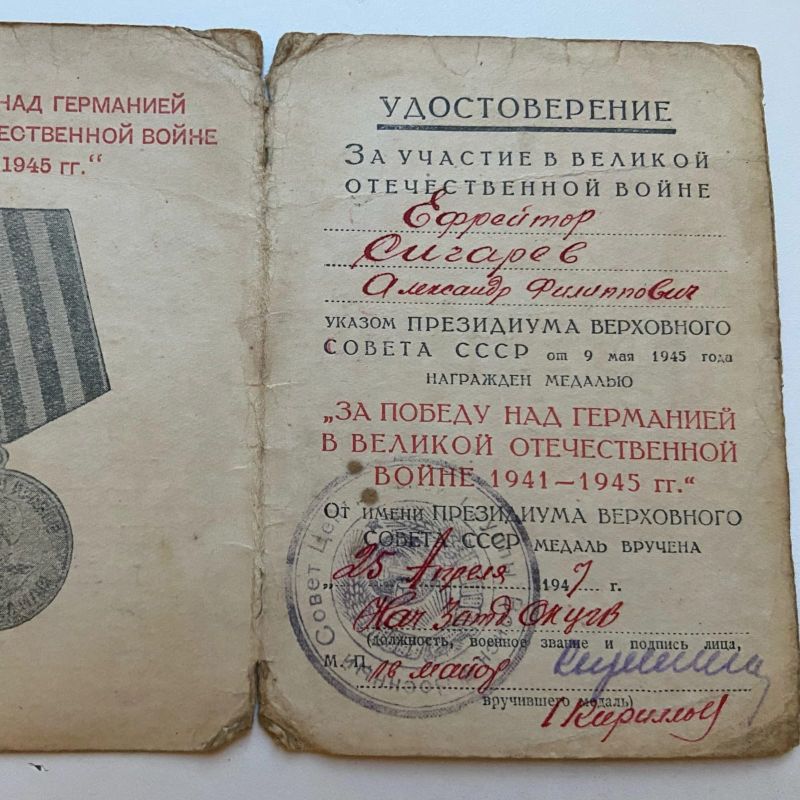 НАД ГЕРМАНИЕЙ
ЕСТВЕННОЙ ВОЙНЕ
1945 гг.“
УДОСТОВЕРЕНИЕ
ЗА УЧАСТИЕ В ВЕЛИКОЙ
ОТЕЧЕСТВЕННОЙ ВОЙНЕ
Ефрейтор
Сигарев
Александр Филиппович
УКАЗОМ ПРЕЗИДИУМА ВЕРХОВНОГО
СОВЕТА СССР от 9 мая 1945 года
НАГРАЖДЕН МЕДАЛЬЮ
„ЗА ПОБЕДУ НАД ГЕРМАНИЕЙ
В ВЕЛИКОЙ ОТЕЧЕСТВЕННОЙ
ВОЙНЕ 1941—1945 гг.“
От имени ПРЕЗИДИУМА ВЕРХОВНОГО
СОВЕТА СССР МЕДАЛЬ ВРУЧЕНА
„25 Апреля 1947 г.
Нач
(должность, военное звание и подпись лица,
М. П. майор
вручившего медаль)
Кириллов